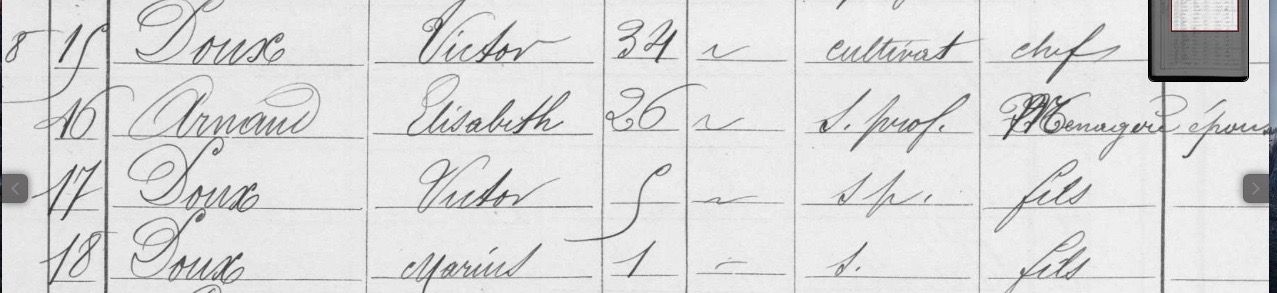 8 15 Doux Victor 34 ~ cultivat chef
16 Arnaud Elisabeth 26 ~ S. prof. Menagère épous
17 Doux Victor 5 ~ s p. fils
18 Doux Marius 1 - s. fils